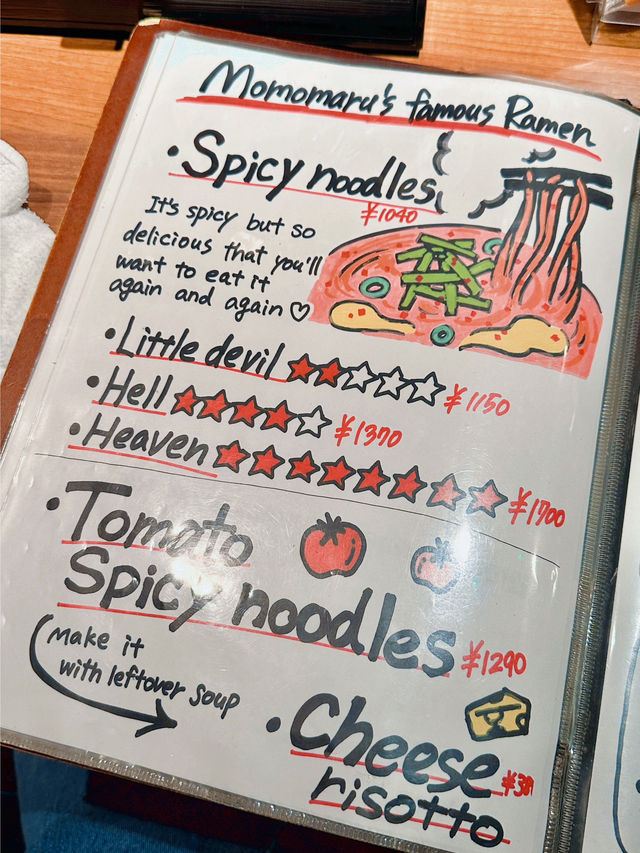 Momomaru's famous Ramen
・Spicy noodles
¥1040
It's spicy but so
delicious that you'll
want to eat it
again and again ♡
・Little devil ★★☆☆☆ ¥1150
・Hell ★★★★☆ ¥1370
・Heaven ★★★★★★★★ ¥1700
・Tomato
Spicy noodles ¥1290
Make it
with leftover soup
・Cheese
risotto